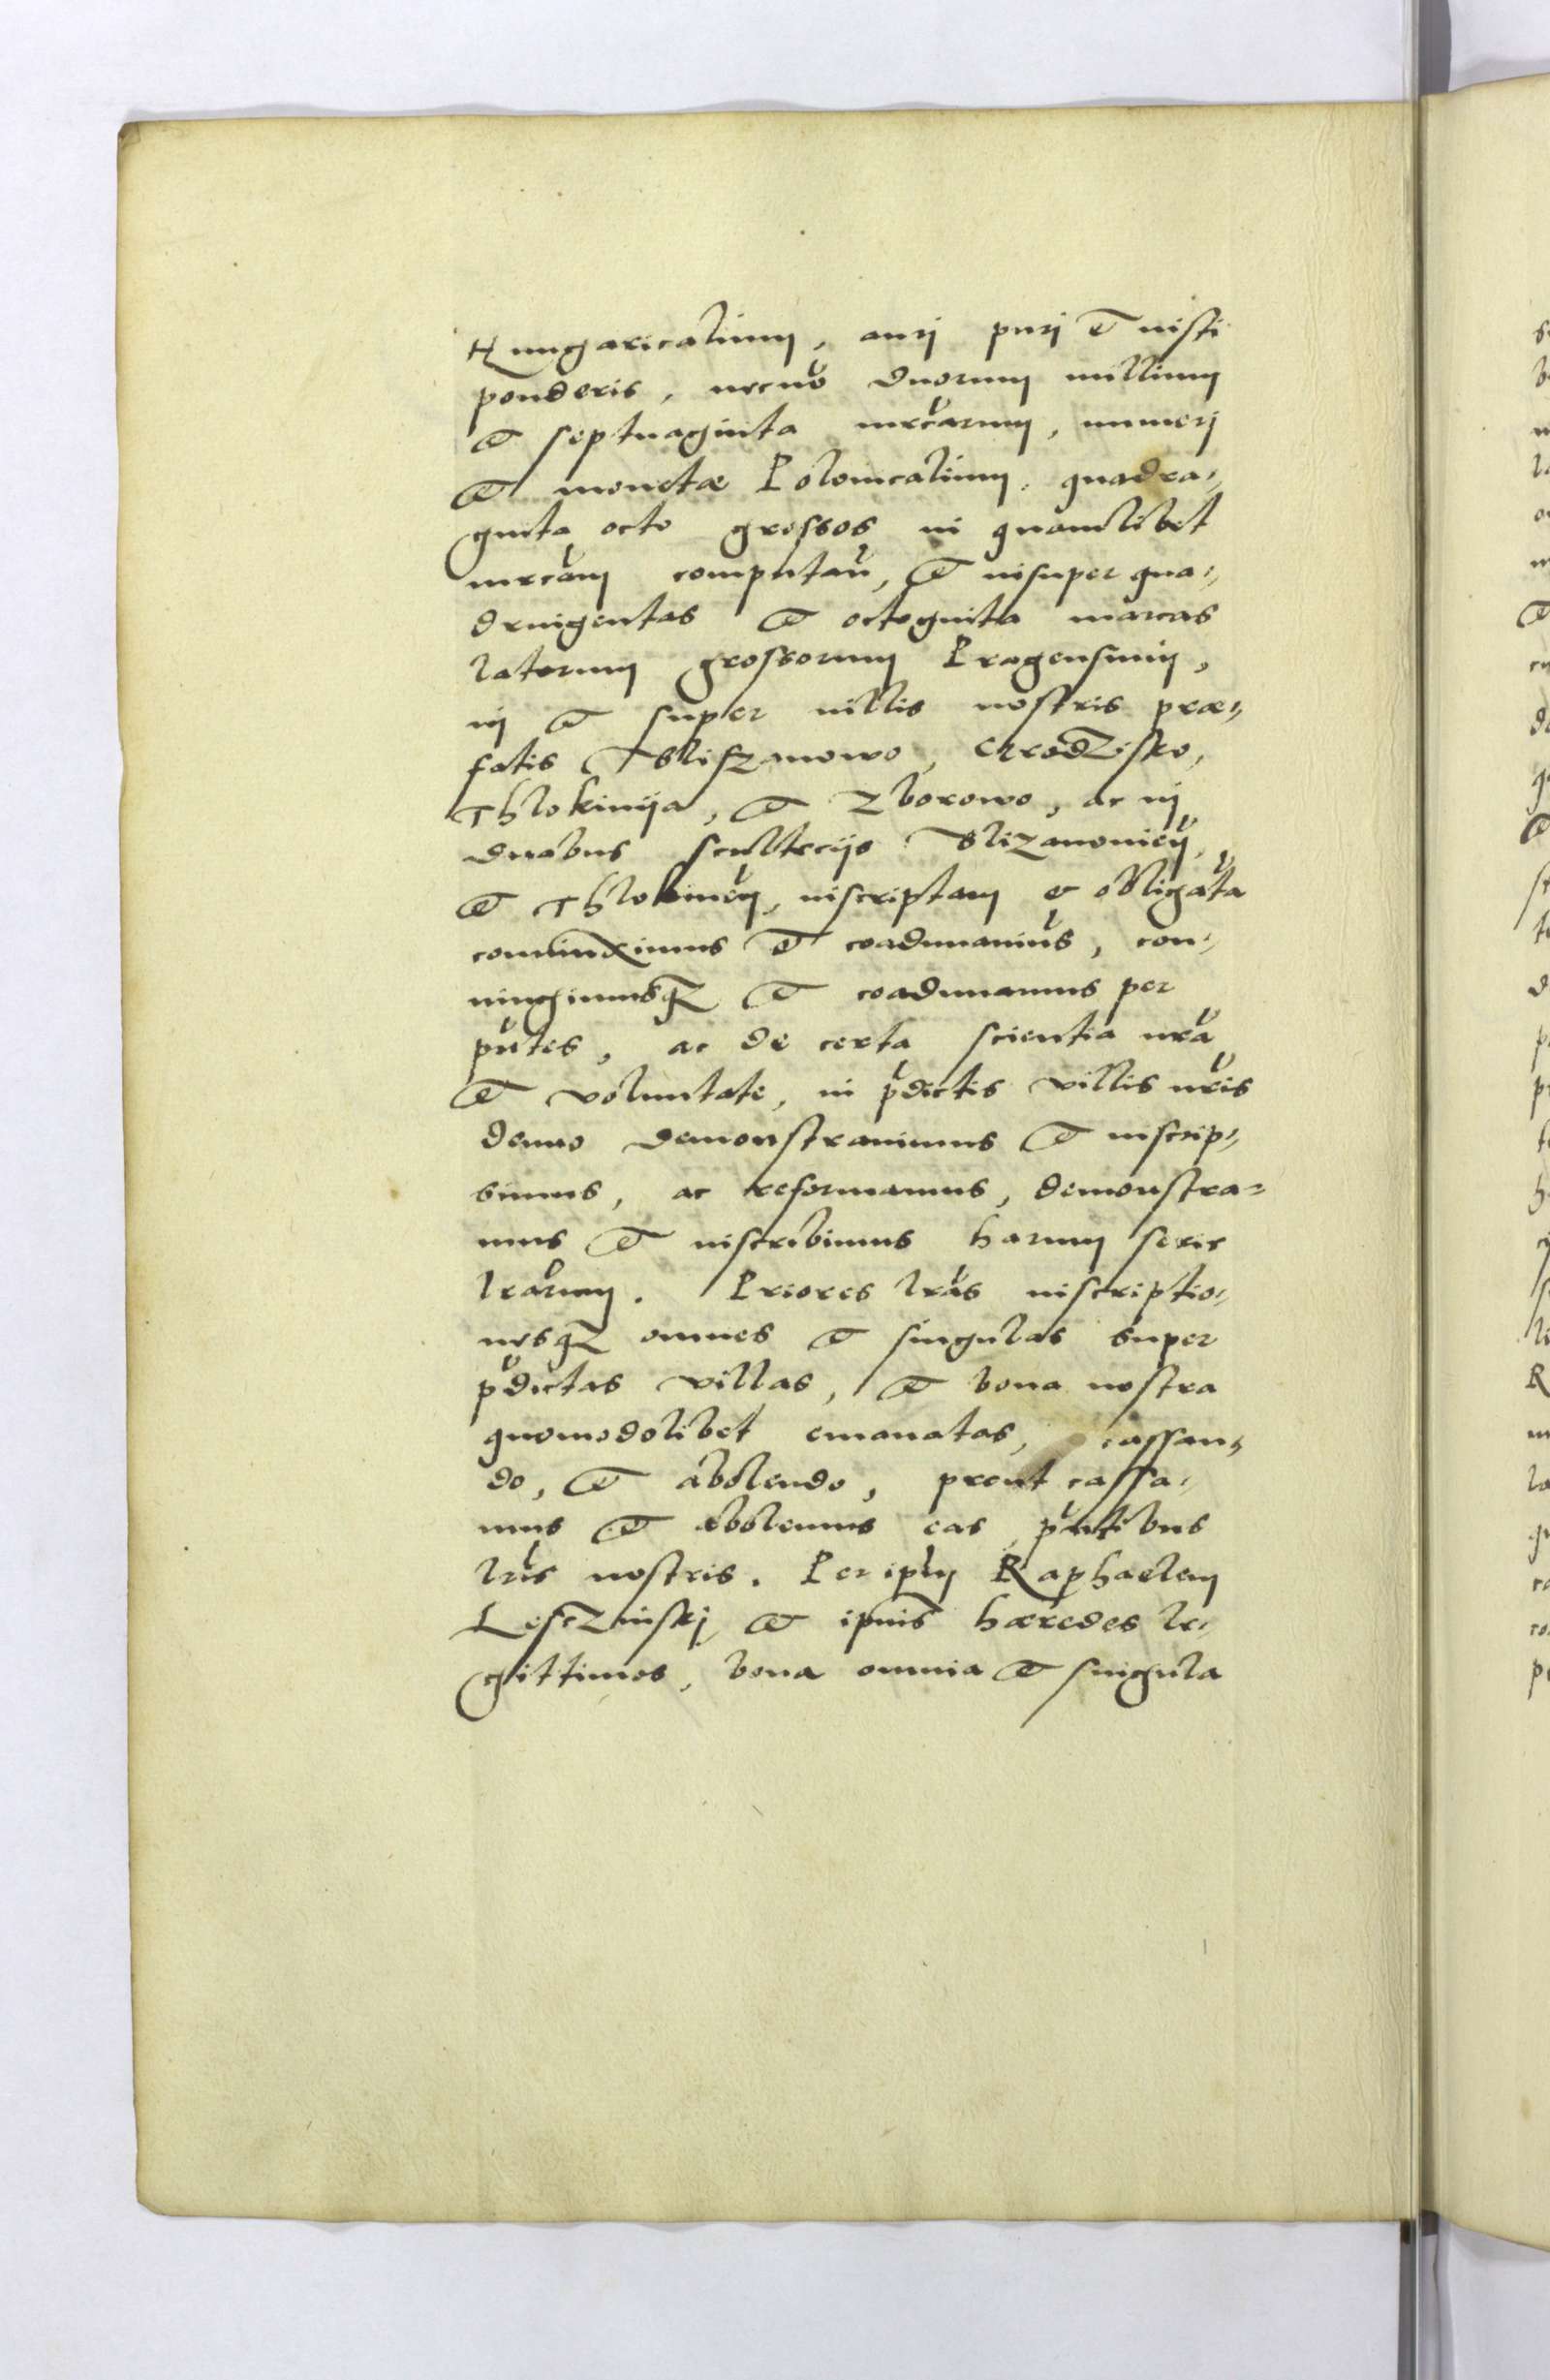 Hungaricalium, auri puri et iusti
ponderis, necnō duorum millium
et septuaginta mrcarum, numeri
et monetæ Polonicalium, quadra-
ginta octo grossos in quamlibet
mrcam computan, et insuper qua-
dringentas et octoginta marcas
latorum grossorum Pragensium,
in et super villis nostris præ-
fatis Bliszanowo, Grodzisko,
Thlokinya, et Zborowo, ac in
duabus scultecijs Blizanowien,
et Thlokinen, inscriptam & obligata
conuinximus et coadunauims, con-
iungimusq et coadunamus per
pntes, ac de certa scientia nra
et voluntate, in pdictis villis nris
denuo demonstrauimus et inscrip-
simus, ac reformamus, demonstra-
mus et inscribimus harum serie
lrarum. Priores lras inscriptio-
nesq omnes et singulas super
pdictas villas, et bona nostra
quomodolibet emanatas, cassan-
do, et abolendo, prout cassa-
mus et abolemus eas pntibus
lris nostris. Per ipm Raphaelem
Lesczinskj et ipius hæredes le-
gittimos, bona omnia et singula